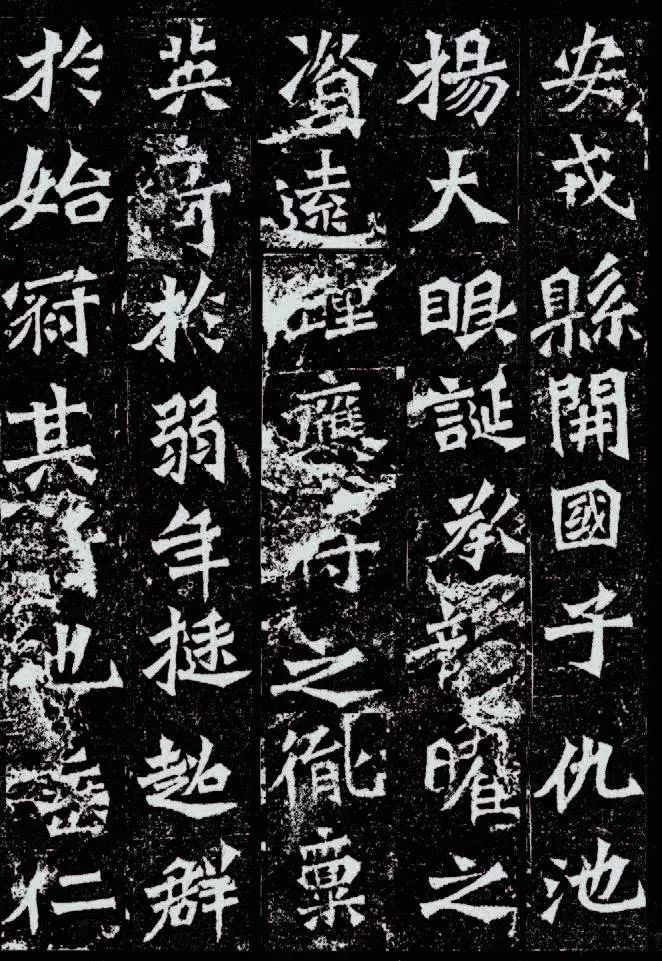 安戎縣開國子仇池
揚大眼誕承龍曜之
資遠踵應符之胤稟
英奇於弱年挺超群
於始冠其行也垂仁